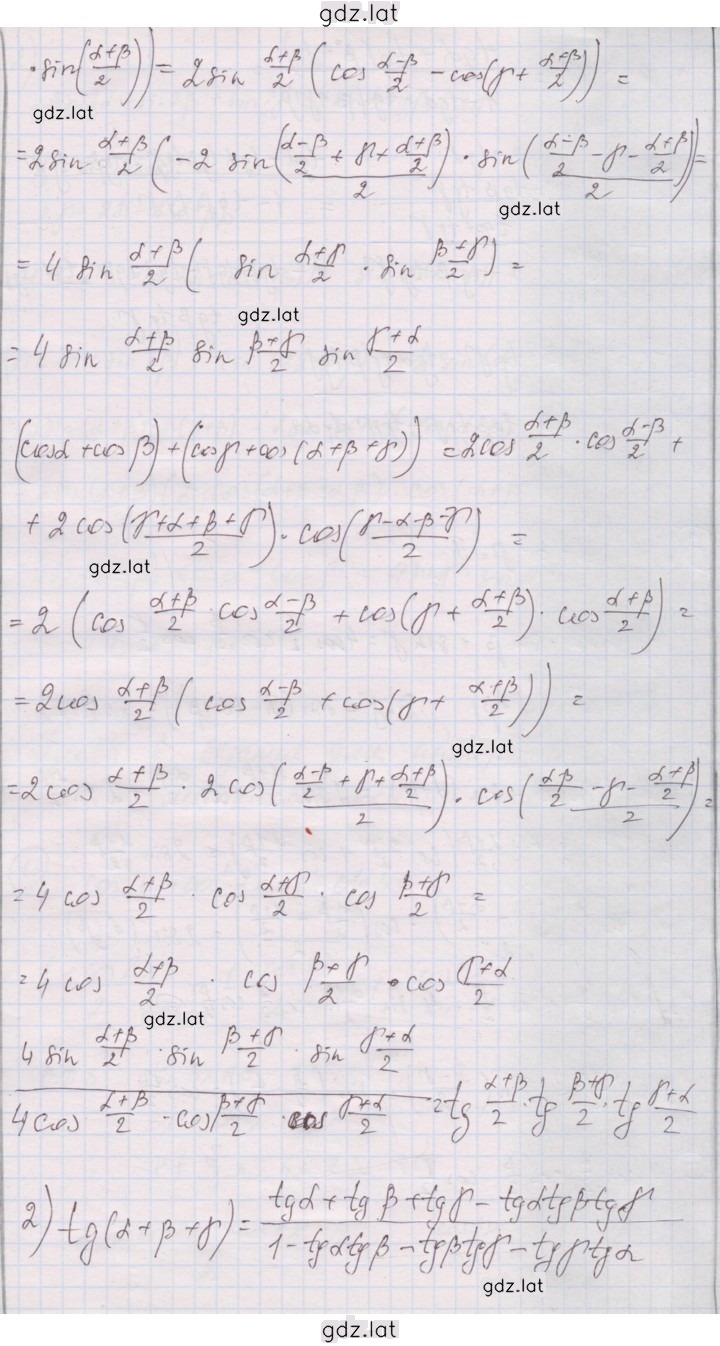 gdz.lat
· sin((α+β)/2)) = 2 sin (α+β)/2 (cos (α-β)/2 - cos(γ + (α+β)/2)) =
gdz.lat
= 2 sin (α+β)/2 (-2 sin(((α-β)/2 + γ + (α+β)/2)/2) · sin(((α-β)/2 - γ - (α+β)/2)/2)) =
gdz.lat
= 4 sin (α+β)/2 ( sin (α+γ)/2 · sin (β+γ)/2) =
gdz.lat
= 4 sin (α+β)/2 sin (β+γ)/2 sin (γ+α)/2
(cosα + cos β) + (cosγ + cos (α+β+γ)) = 2cos (α+β)/2 · cos (α-β)/2 +
+ 2 cos((γ+α+β+γ)/2) · cos((γ-α-β-γ)/2) =
gdz.lat
= 2 (cos (α+β)/2 · cos (α-β)/2 + cos(γ + (α+β)/2) · cos (α+β)/2) =
= 2cos (α+β)/2 (cos (α-β)/2 + cos(γ + (α+β)/2)) =
gdz.lat
= 2 cos (α+β)/2 · 2 cos(((α-β)/2 + γ + (α+β)/2)/2) · cos(((α-β)/2 - γ - (α+β)/2)/2) =
= 4 cos (α+β)/2 · cos (α+γ)/2 · cos (β+γ)/2 =
= 4 cos (α+β)/2 · cos (β+γ)/2 · cos (γ+α)/2
gdz.lat
(4 sin (α+β)/2 · sin (β+γ)/2 · sin (γ+α)/2)/(4 cos (α+β)/2 · cos (β+γ)/2 · cos (γ+α)/2) = tg (α+β)/2 · tg (β+γ)/2 · tg (γ+α)/2
2) tg(α+β+γ) = (tgα + tg β + tgγ - tgαtgβtgγ)/(1 - tgαtgβ - tgβtgγ - tgγtgα)
gdz.lat
gdz.lat